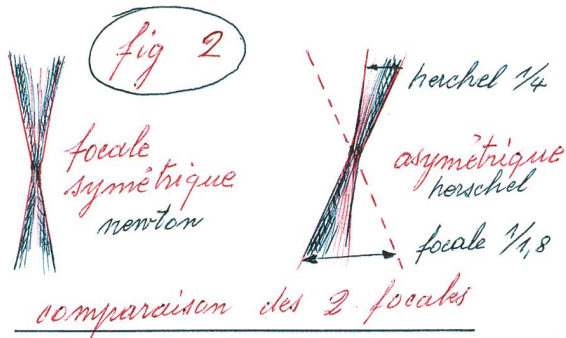 fig 2
focale
symétrique
newton
herchel 1/4
asymétrique
herschel
focale 1/1,8
comparaison des 2 focales